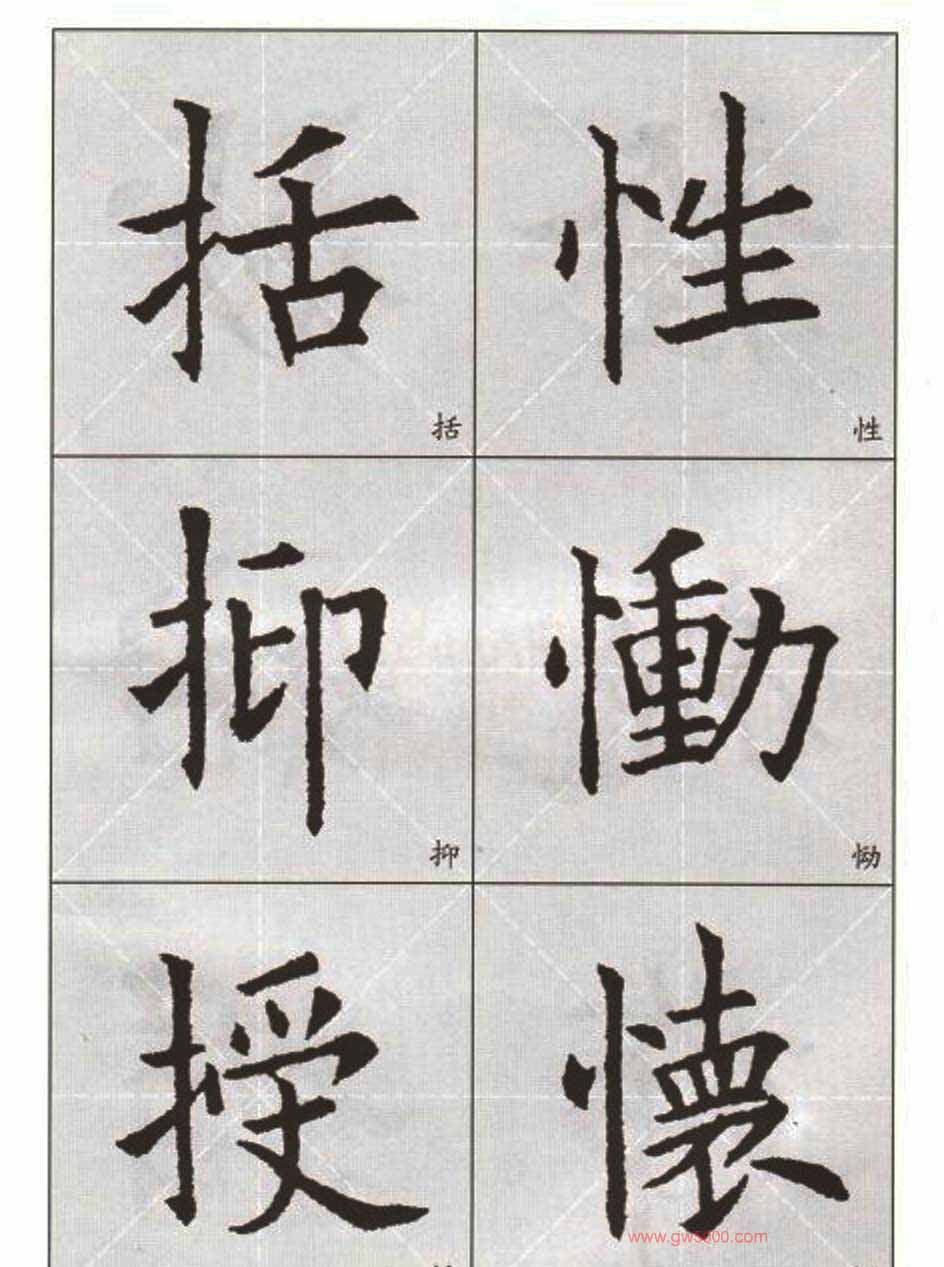 括 性
括 性
抑 慟
抑 恸
授 懷
www.gw3000.com